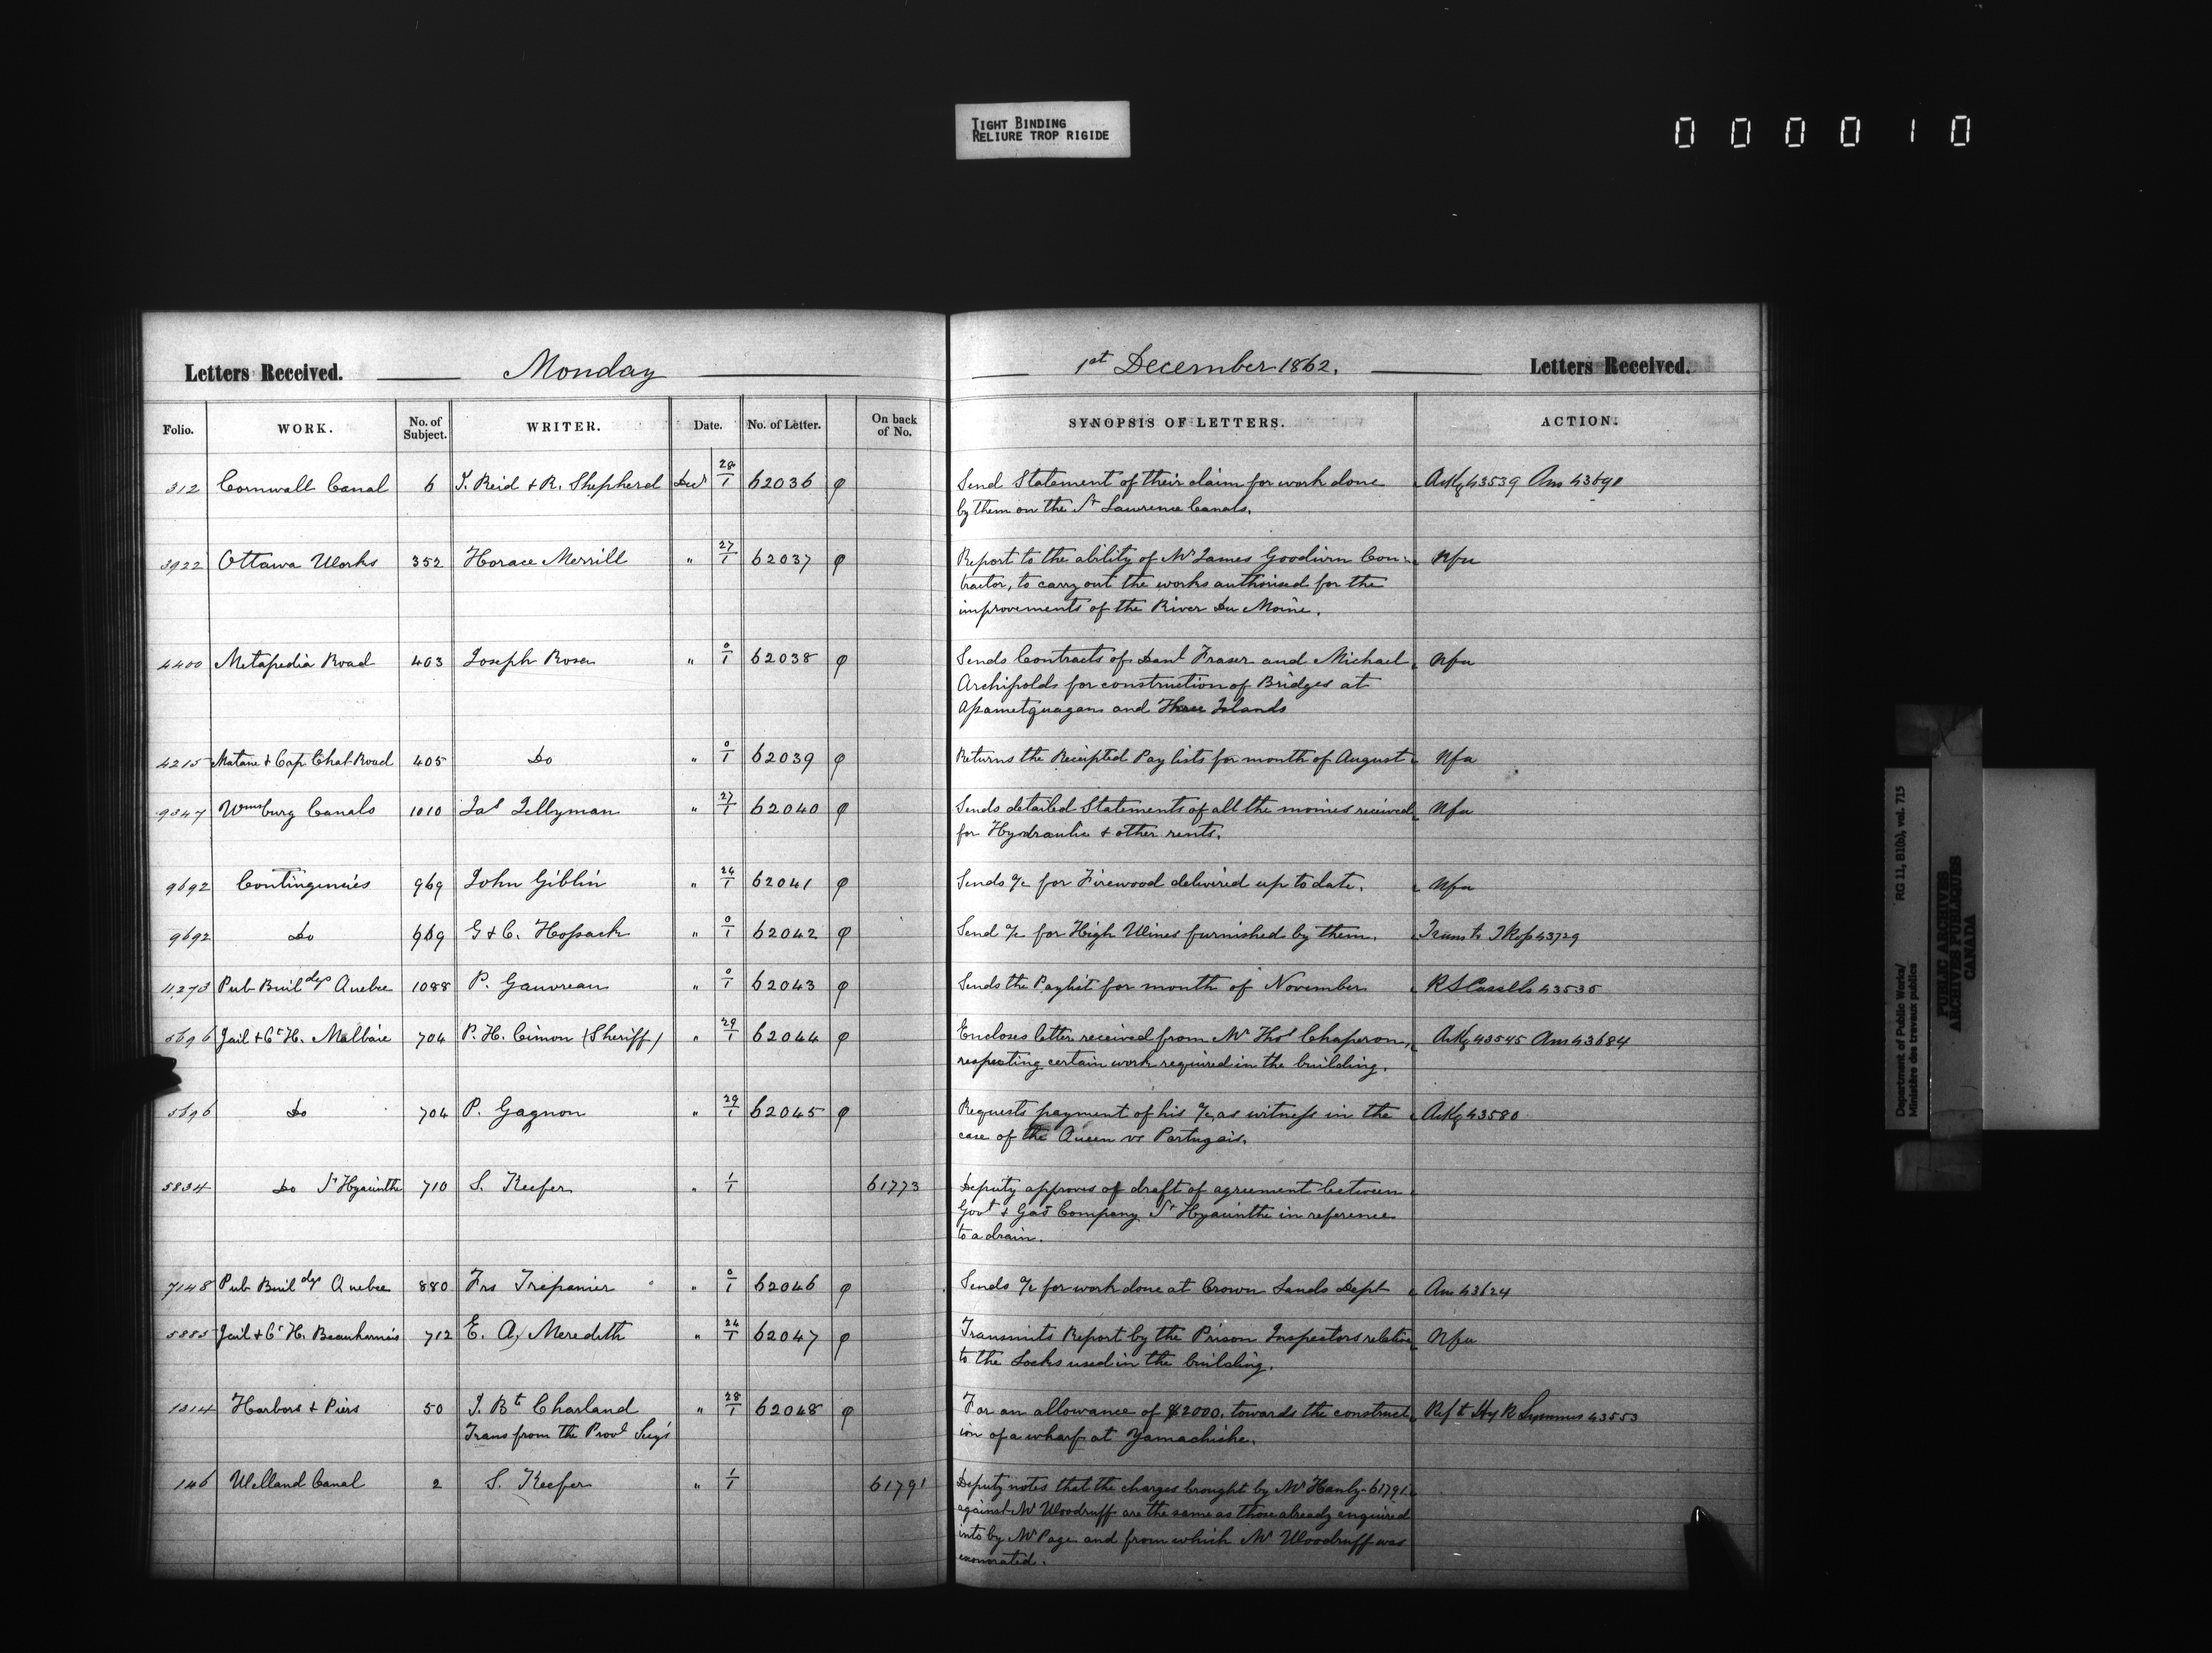 TIGHT BINDING
RELIURE TROP RIGIDE
000010
Letters Received. Monday 1st December 1862. Letters Received.
Folio. WORK. No. of Subject. WRITER. Date. No. of Letter. On back of No. SYNOPSIS OF LETTERS. ACTION.
312 Cornwall Canal 6 J. Reid & R. Shepherd Decr 28/1 62036 φ Send Statement of their claim for work done Ackg 43539 Ans 43691
by them on the St Lawrence Canals.
3922 Ottawa Works 352 Horace Merrill " 27/1 62037 φ Report to the ability of Mr James Goodwin Con- Nfa
tractor, to carry out the works authorised for the
improvements of the River Du Moine.
4400 Metapedia Road 403 Joseph Rosa " 0/1 62038 φ Sends Contracts of Danl Fraser and Michael Nfa
Archibolds for construction of Bridges at
Apametquagan and Three Islands
4215 Matane & Cap Chat Road 405 Do " 0/1 62039 φ Returns the Receipted Pay lists for month of August Nfa
9347 Wmsburg Canals 1010 Jas Tellyman " 27/1 62040 φ Sends detailed Statements of all the monies received Nfa
for Hydraulic & other rents.
9692 Contingencies 969 John Giblin " 24/1 62041 φ Sends a/c for Firewood delivered up to date. Nfa
9692 Do 969 G & C. Hossack " 0/1 62042 φ Send a/c for High Wines furnished by them. Trans to 43729
11,273 Pub Buildgs Quebec 1088 P. Gauvreau " 0/1 62043 φ Sends the Paylist for month of November R S Cassells 43535
5696 Jail & Ct H. Malbaie 704 P. H. Cimon (Sheriff) " 29/1 62044 φ Encloses letter received from Mr Thos Chaperon, Ackg 43545 Ans 43684
respecting certain work required in the building.
5696 Do 704 P. Gagnon " 29/1 62045 φ Requests payment of his a/c as witness in the Ackg 43580
case of the Queen vs Portugais.
5834 Do St Hyacinthe 710 S. Keefer " 1/1 61773 Deputy approves of draft of agreement between
Govt & Gas Company St Hyacinthe in reference
to a drain.
7148 Pub Buildgs Quebec 880 Frs Trepanier " 0/1 62046 φ Sends a/c for work done at Crown Lands Dept Ans 43624
5885 Jail & Ct H. Beauharnois 712 E. A. Meredith " 24/1 62047 φ Transmits Report by the Prison Inspectors relative Nfa
to the Locks used in the building.
1314 Harbors & Piers 50 J. Bt Charland " 28/1 62048 φ For an allowance of $2000. towards the construct Ref to Hy R Symmes 43553
Trans from the Provl Secy's ion of a wharf at Yamachiche.
146 Welland Canal 2 S. Keefer " 1/1 61791 Deputy notes that the charges brought by Mr Hanly - 61791
against Mr Woodruff are the same as those already enquired
into by Mr Page and from which Mr Woodruff was
exonerated.
Department of Public Works/ RG 11, B1(b), vol. 715
Ministère des travaux publics
PUBLIC ARCHIVES
ARCHIVES PUBLIQUES
CANADA